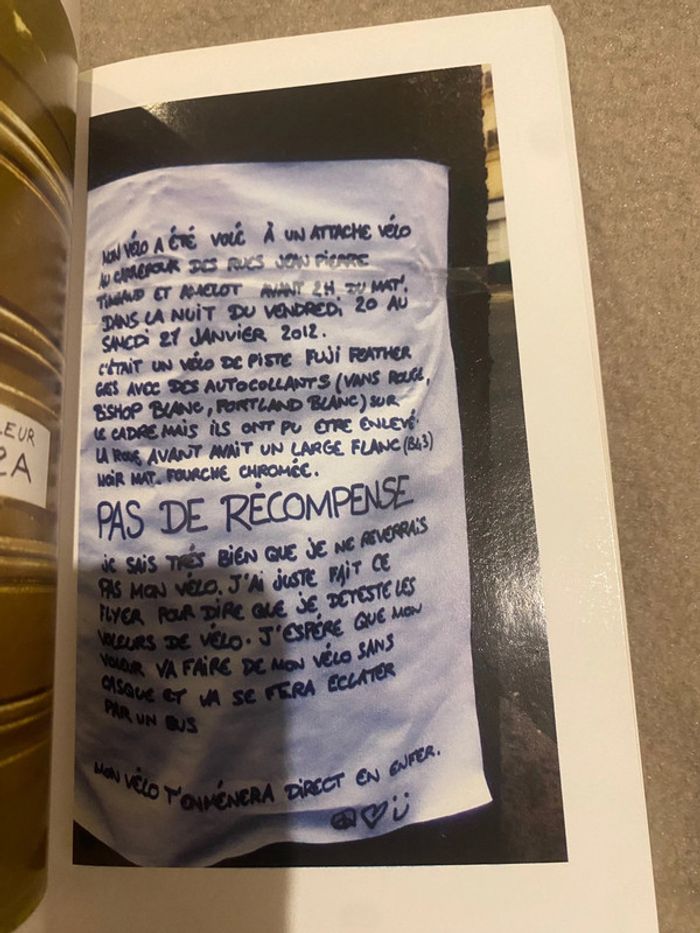 MON VÉLO A ÉTÉ VOLÉ À UN ATTACHE VÉLO
AU CARREFOUR DES RUES JEAN PIERRE
TIMBAUD ET AMELOT AVANT 2H DU MAT'.
DANS LA NUIT DU VENDREDI 20 AU
SAMEDI 21 JANVIER 2012.
C'ÉTAIT UN VÉLO DE PISTE FUJI FEATHER
GRIS AVEC DES AUTOCOLLANTS (VANS ROUGE,
BISHOP BLANC, PORTLAND BLANC) SUR
LE CADRE MAIS ILS ONT PU ETRE ENLEVÉ.
LA ROUE AVANT AVAIT UN LARGE FLANC (B43)
NOIR MAT. FOURCHE CHROMÉE.
PAS DE RÉCOMPENSE
JE SAIS TRÈS BIEN QUE JE NE REVERRAIS
PAS MON VÉLO. J'AI JUSTE FAIT CE
FLYER POUR DIRE QUE JE DETESTE LES
VOLEURS DE VÉLO. J'ESPÈRE QUE MON
VOLEUR VA FAIRE DE MON VÉLO SANS
CASQUE ET VA SE FERA ECLATER
PAR UN BUS
MON VÉLO T'ENMÉNERA DIRECT EN ENFER.
LEUR
2A